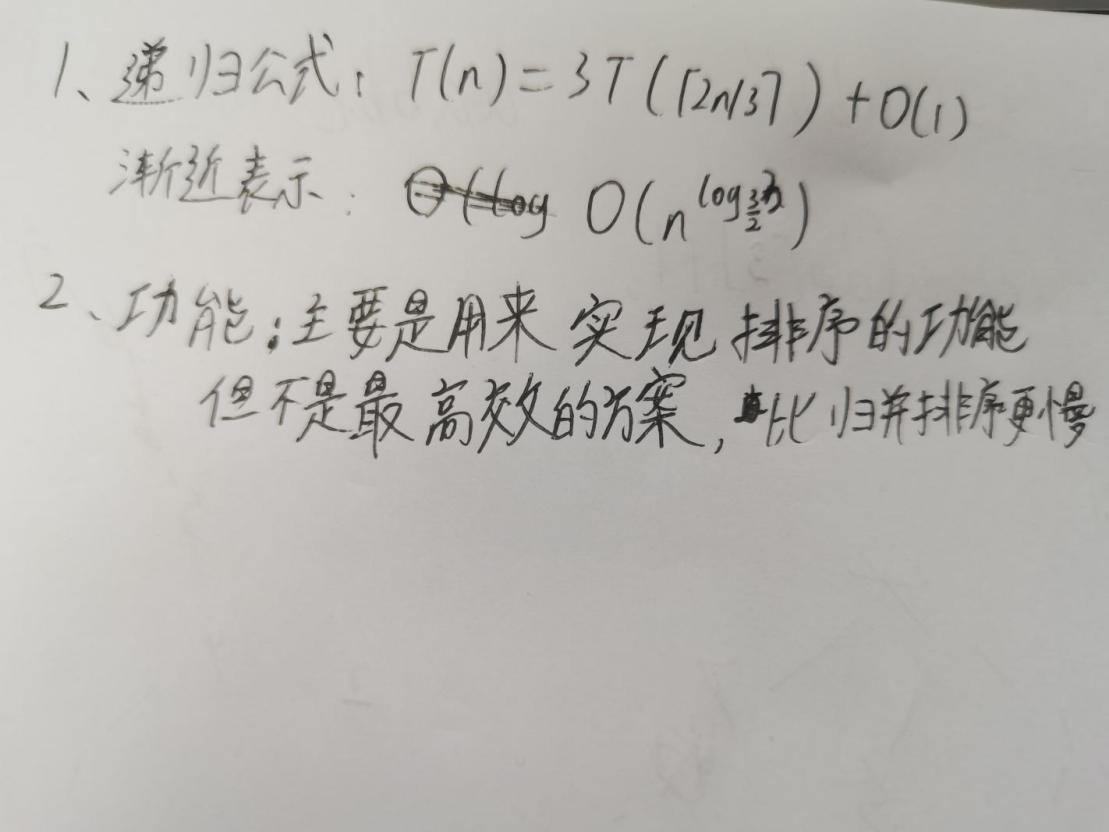 1、递归公式: T(n)=3T(⌈2n/3⌉)+O(1)
渐近表示: O(n^log_{3/2}3)
2、功能:主要是用来实现排序的功能
但不是最高效的方案,比归并排序更慢